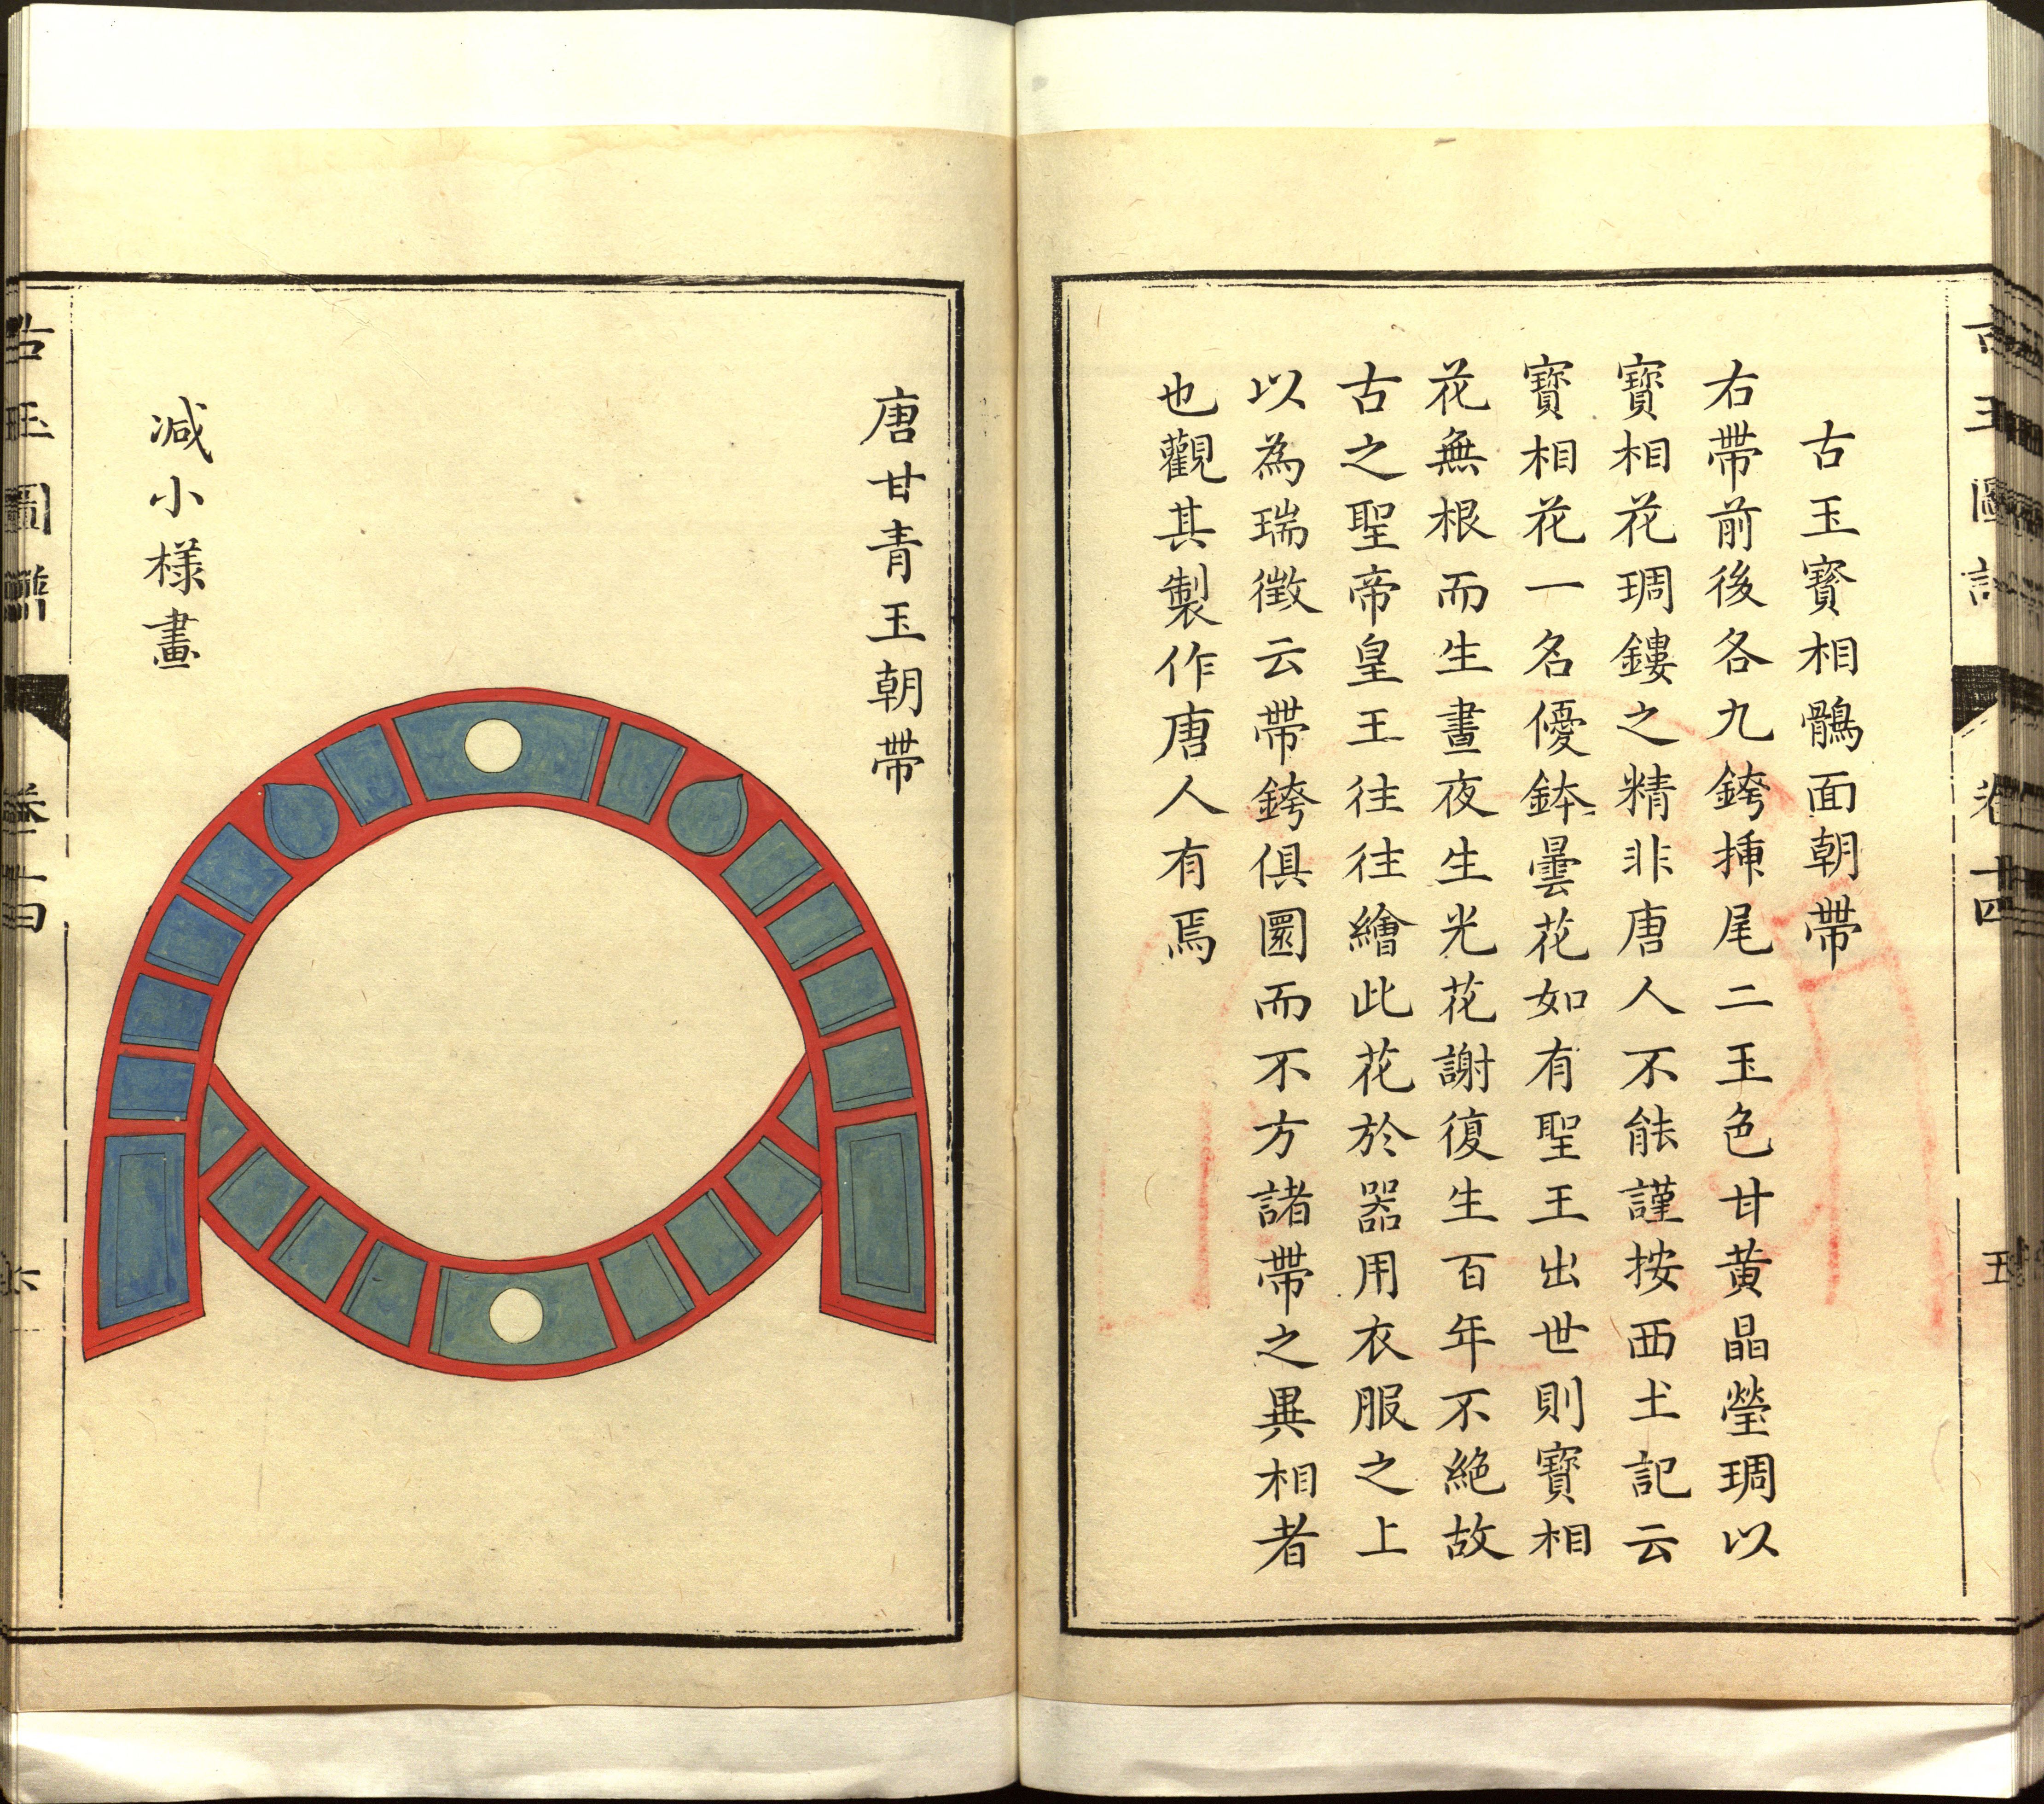 古玉圖譜 卷十四 五
古玉寳相鶻面朝帶
右帶前後各九銙揷尾二玉色甘黄晶瑩琱以
寳相花琱鏤之精非唐人不能謹按西土記云
寳相花一名優鉢曇花如有聖王出世則寳相
花無根而生晝夜生光花謝復生百年不絶故
古之聖帝皇王往往繪此花於器用衣服之上
以為瑞徴云帶銙俱圜而不方諸帶之異相者
也觀其製作唐人有焉
唐甘青玉朝帶
减小樣畫
古玉圖譜 卷十四 六